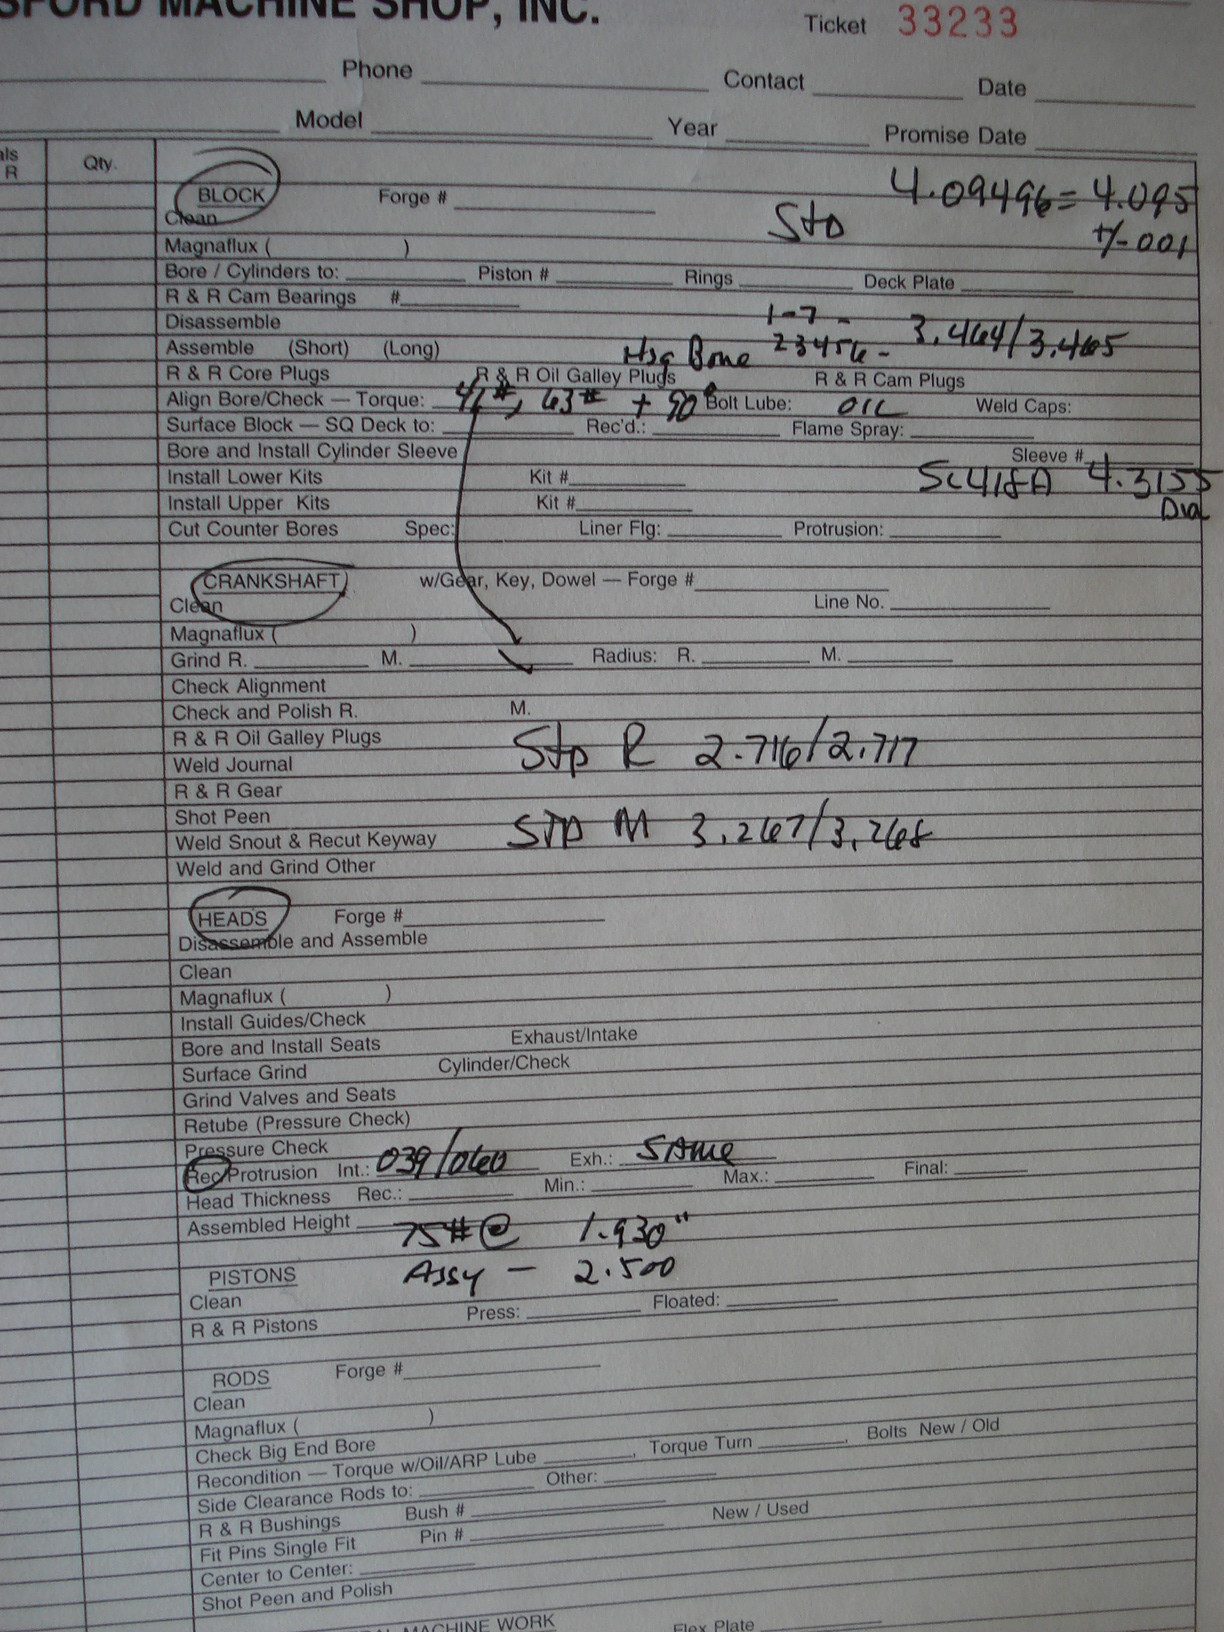 SFORD MACHINE SHOP, INC.
Ticket 33233
Phone Contact Date
Model Year Promise Date
als
R Qty.
4.09496 = 4.095
BLOCK Forge #
Std
+/- 001
Clean
Magnaflux ( )
Bore / Cylinders to: Piston # Rings Deck Plate
R & R Cam Bearings #
1-7 - 3.464/3.465
Disassemble
Assemble (Short) (Long) Hsg Bore 23456 -
R & R Core Plugs R & R Oil Galley Plugs R & R Cam Plugs
Align Bore/Check — Torque: 42#, 63# + 90° Bolt Lube: OIL Weld Caps:
Surface Block — SQ Deck to: Rec'd.: Flame Spray:
Bore and Install Cylinder Sleeve Sleeve #
SC418A 4.3155
Install Lower Kits Kit #
Dia
Install Upper Kits Kit #
Cut Counter Bores Spec: Liner Flg: Protrusion:
CRANKSHAFT w/Gear, Key, Dowel — Forge #
Clean Line No.
Magnaflux ( )
Grind R. M. Radius: R. M.
Check Alignment
Check and Polish R. M.
R & R Oil Galley Plugs
Std R 2.716/2.717
Weld Journal
R & R Gear
Shot Peen
STD M 3.267/3.268
Weld Snout & Recut Keyway
Weld and Grind Other
HEADS Forge #
Disassemble and Assemble
Clean
Magnaflux ( )
Install Guides/Check
Bore and Install Seats Exhaust/Intake
Surface Grind Cylinder/Check
Grind Valves and Seats
Retube (Pressure Check)
Pressure Check
Rec/Protrusion Int.: 039/060 Exh.: SAme
Head Thickness Rec.: Min.: Max.: Final:
Assembled Height 75#@ 1.930"
PISTONS Assy - 2.500
Clean
R & R Pistons Press: Floated:
RODS Forge #
Clean
Magnaflux ( )
Check Big End Bore
Recondition — Torque w/Oil/ARP Lube , Torque Turn , Bolts New / Old
Side Clearance Rods to: Other:
R & R Bushings Bush # New / Used
Fit Pins Single Fit Pin #
Center to Center:
Shot Peen and Polish
MACHINE WORK Flex Plate